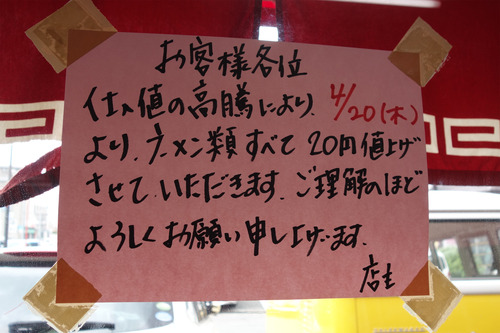 お客様各位
仕入値の高騰により、4/20(木)
より、ラーメン類すべて20円値上げ
させて、いただきます。ご理解のほど
よろしくお願い申し上げます。
店主